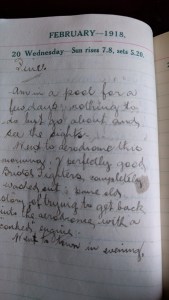 FEBRUARY—1918.
20 Wednesday—Sun rises 7.8, sets 5.20.
Am in a pool for a
few days; nothing to
do but go about and
see the sights.
Went to aerodrome this
morning. 2 perfectly good
Bristol Fighters completely
washed out; same old
story of trying to get back
into the aerodrome with a
conked engine.
Went to town in evening.